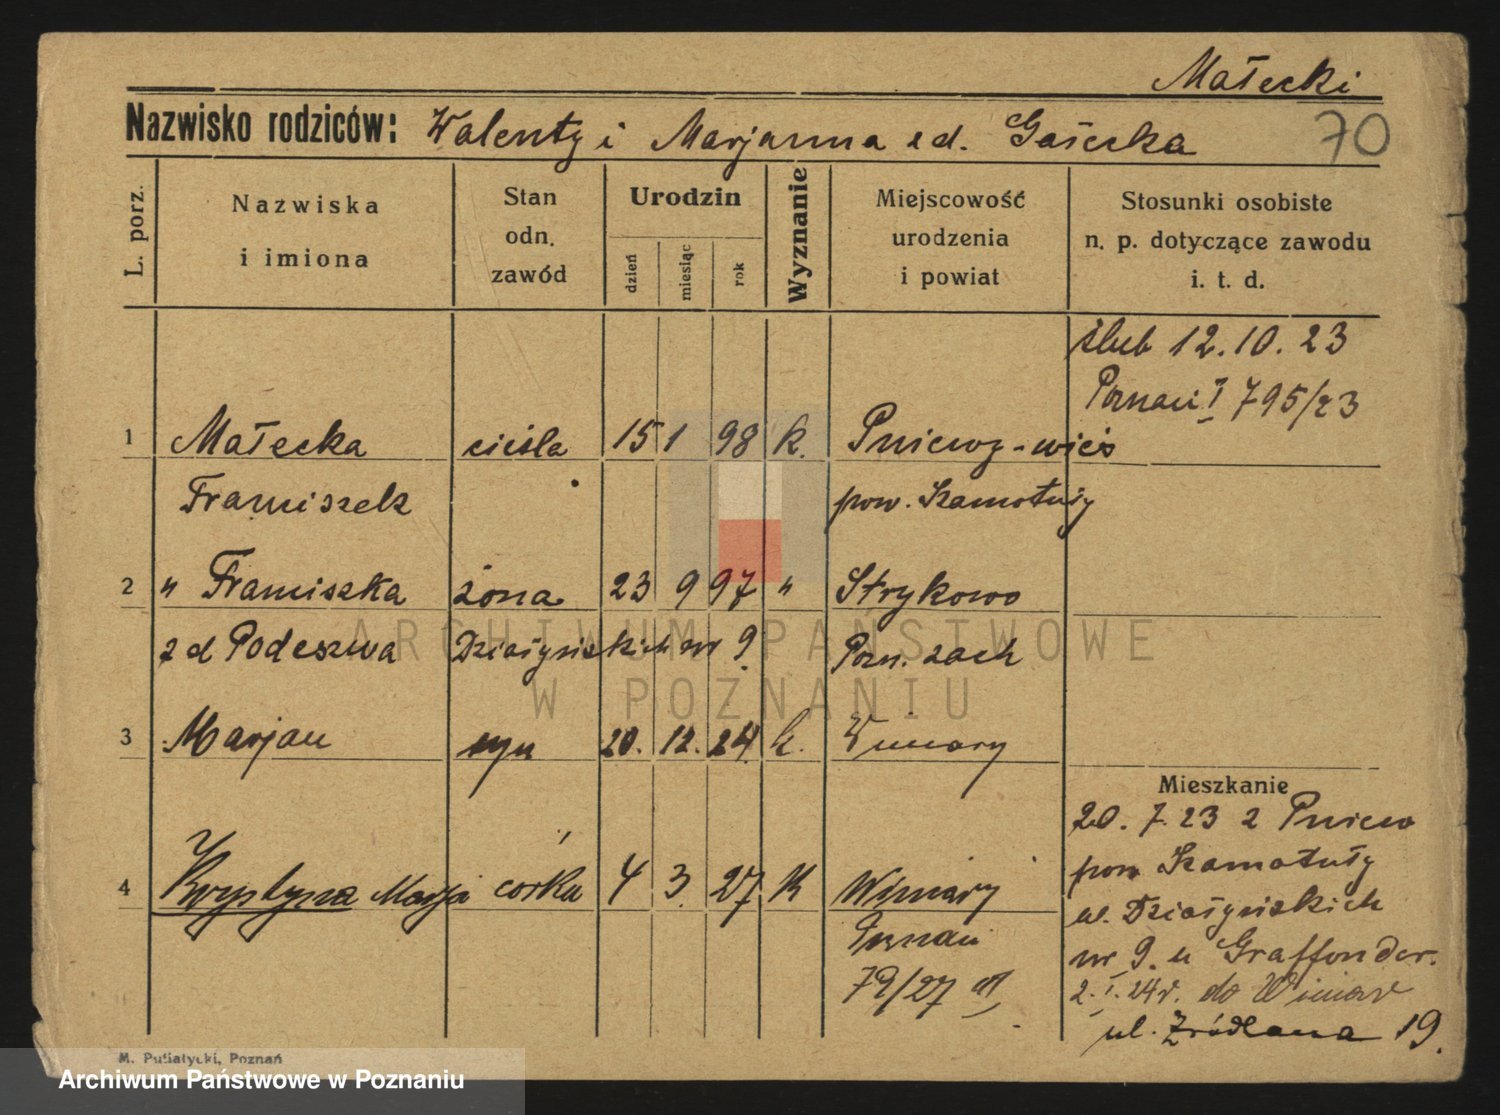 Małecki
Nazwisko rodziców: Walenty i Marjanna z d. Gałecka
70
L. porz.
Nazwiska
i imiona
Stan
odn.
zawód
Urodzin
dzień
miesiąc
rok
Wyznanie
Miejscowość
urodzenia
i powiat
Stosunki osobiste
n. p. dotyczące zawodu
i. t. d.
ślub 12.10.23
Poznań I 795/23
1 Małecka cieśla 15 1 98 k. Pniewy-wieś
Franciszek pow. Szamotuły
2 " Franciszka żona 23 9 97 " Strykowo
z d Podeszwa Działyńskich nr 9. Pozn. zach
3 Marjan syn 20. 12. 24 k. Winiary
4 Krystyna Marja córka 4 3. 27 K Winiary
Poznań
79/27
Mieszkanie
20. 7. 23 z Pniew
pow Szamotuły
ul. Działyńskich
nr 9. u Graffonder.
2. I. 24r. do Winiar
ul. Źródlana 19.
M. Putiatycki, Poznań
ARCHIWUM PAŃSTWOWE
W POZNANIU
Archiwum Państwowe w Poznaniu